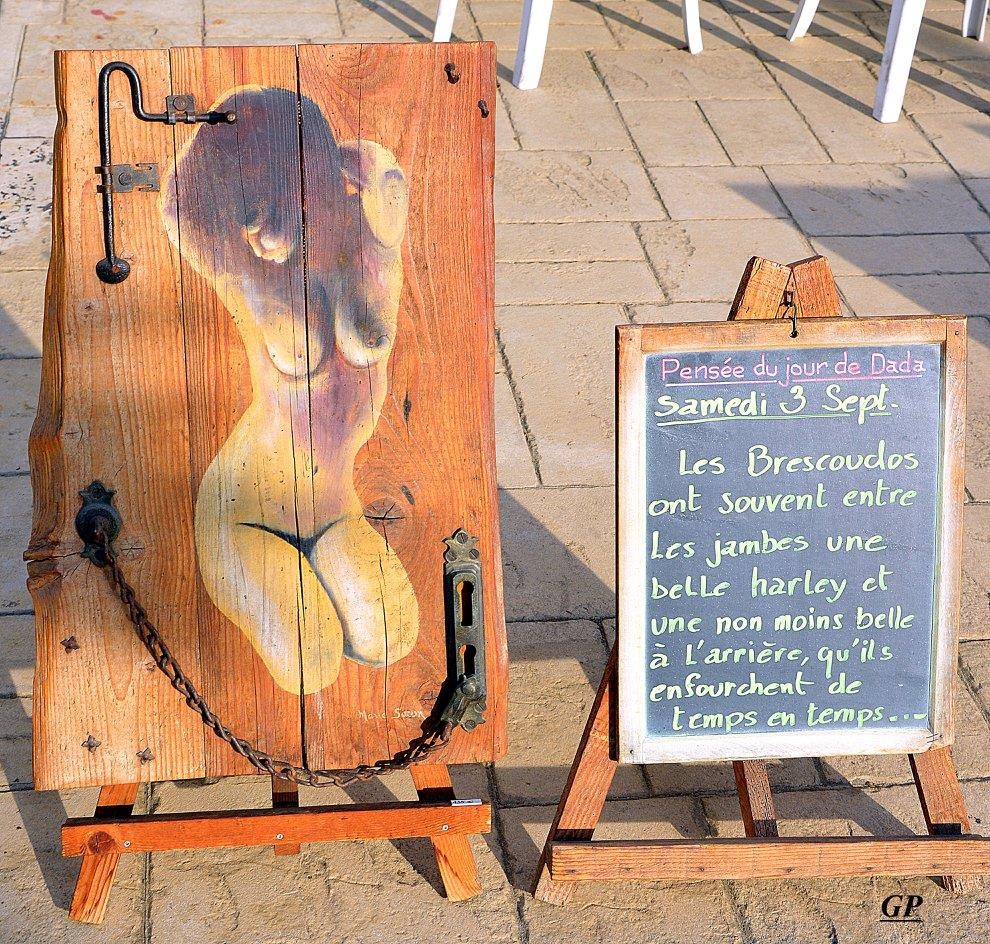 Pensée du jour de Dada
Samedi 3 Sept.
Les Brescoudos
ont souvent entre
Les jambes une
belle harley et
une non moins belle
à L'arrière, qu'ils
enfourchent de
temps en temps...
GP